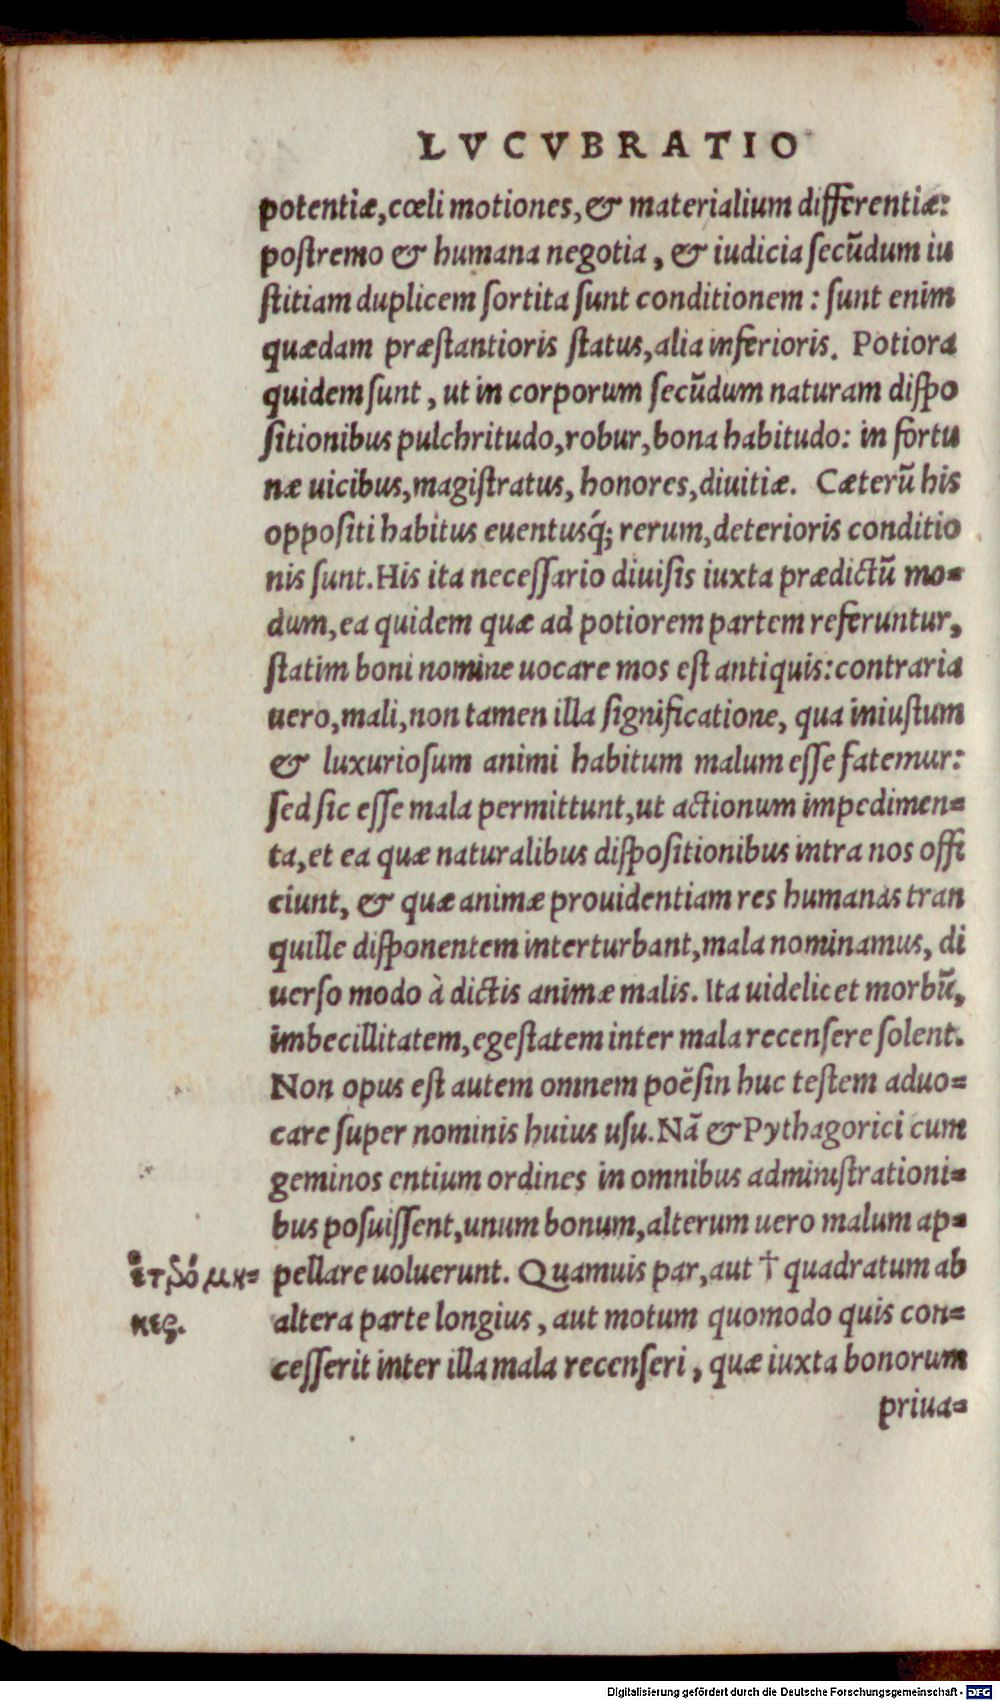 LVCVBRATIO
potentiæ, cœli motiones, & materialium differentiæ:
postremo & humana negotia, & iudicia secũdum iu
stitiam duplicem sortita sunt conditionem: sunt enim
quædam præstantioris status, alia inferioris. Potiora
quidem sunt, ut in corporum secũdum naturam dispo
sitionibus pulchritudo, robur, bona habitudo: in fortu
næ uicibus, magistratus, honores, diuitiæ. Cæterũ his
oppositi habitus euentusq́; rerum, deterioris conditio
nis sunt. His ita necessario diuisis iuxta prædictũ mo=
dum, ea quidem quæ ad potiorem partem referuntur,
statim boni nomine uocare mos est antiquis: contraria
uero, mali, non tamen illa significatione, qua iniustum
& luxuriosum animi habitum malum esse fatemur:
sed sic esse mala permittunt, ut actionum impedimen=
ta, et ea quæ naturalibus dispositionibus intra nos offi
ciunt, & quæ animæ prouidentiam res humanas tran
quille disponentem interturbant, mala nominamus, di
uerso modo à dictis animæ malis. Ita uidelicet morbũ,
imbecillitatem, egestatem inter mala recensere solent.
Non opus est autem omnem poësin huc testem aduo=
care super nominis huius usu. Nã & Pythagorici cum
geminos entium ordines in omnibus administrationi=
bus posuissent, unum bonum, alterum uero malum ap=
pellare uoluerunt. Quamuis par, aut † quadratum ab
altera parte longius, aut motum quomodo quis con=
cesserit inter illa mala recenseri, quæ iuxta bonorum
priua=
ἑτρόμη=
κες.
Digitalisierung gefördert durch die Deutsche Forschungsgemeinschaft - DFG